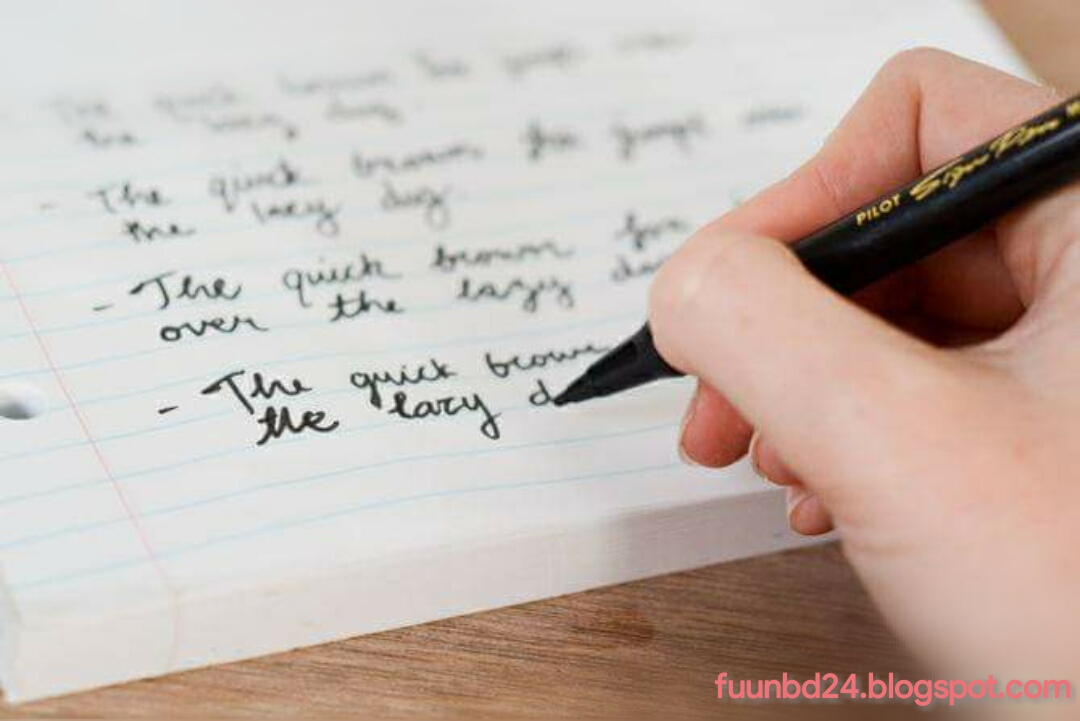 The quick brown fox jumps over
the lazy dog
- The quick brown fox jumps over
the lazy dog
- The quick brown fox
over the lazy
- The quick brown
the lazy d
PILOT Sign Pen
fuunbd24.blogspot.com